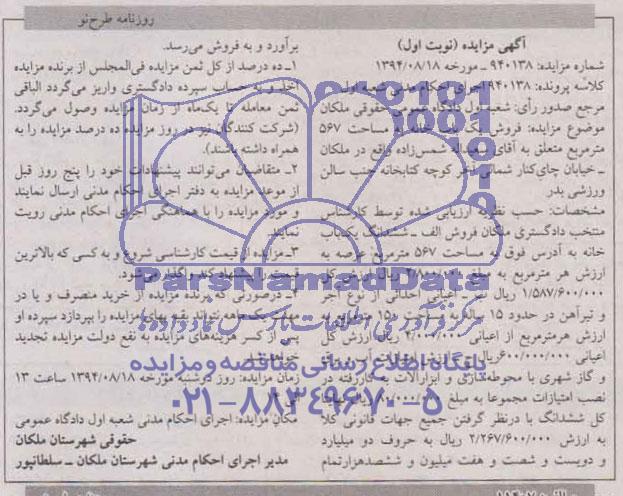 روزنامه طرح‌نو
آگهی مزایده (نوبت اول)
شماره مزایده: ۹۴۰۱۳۸ ـ مورخه ۱۳۹۴/۰۸/۱۸
کلاسه پرونده: ۹۴۰۱۳۸ اجرای احکام مدنی شعبه اول
مرجع صدور رأی: شعبه اول دادگاه عمومی حقوقی ملکان
موضوع مزایده: فروش یک باب خانه به مساحت ۵۶۷
مترمربع متعلق به آقای سعداله شمس‌زاده واقع در ملکان
ـ خیابان چای‌کنار شمالی آخر کوچه کتابخانه جنب سالن
ورزشی بدر
مشخصات: حسب نظریه ارزیابی شده توسط کارشناس
منتخب دادگستری ملکان فروش الف ـ ششدانگ یکباب
خانه به آدرس فوق به مساحت ۵۶۷ مترمربع عرصه به
ارزش هر مترمربع به مبلغ ۲/۸۰۰/۰۰۰ ریال ارزش کل
۱/۵۸۷/۶۰۰/۰۰۰ ریال اعیانی احداثی از نوع آجر
و تیرآهن در حدود ۱۵ ساله به مساحت ۱۵۰ مترمربع به
ارزش هرمترمربع از اعیانی ۴/۰۰۰/۰۰۰ ریال ارزش کل
اعیانی ۶۰۰/۰۰۰/۰۰۰ ریال ارزش امتیازات آب و برق
و گاز شهری با محوطه‌سازی و ابزارآلات به کاررفته در
نصب امتیازات مجموعا به مبلغ ۸۰/۰۰۰/۰۰۰ ریال
کل ششدانگ با درنظر گرفتن جمیع جهات قانونی کلا
به ارزش ۲/۲۶۷/۶۰۰/۰۰۰ ریال به حروف دو میلیارد
و دویست و شصت و هفت میلیون و ششصدهزارتمام
برآورد و به فروش می‌رسد.
۱ـ ده درصد از کل ثمن مزایده فی‌المجلس از برنده مزایده
اخذ و به حساب سپرده دادگستری واریز می‌گردد الباقی
ثمن معامله تا یک‌ماه از زمان مزایده وصول می‌گردد.
(شرکت کنندگان نیز در روز مزایده ده درصد مزایده را به
همراه داشته باشند).
۲ـ متقاضیان می‌توانند پیشنهادات خود را پنج روز قبل
از موعد مزایده به دفتر اجرای احکام مدنی ارسال نمایند
و مورد مزایده را با هماهنگی اجرای احکام مدنی رویت
نمایند.
۳ـ مزایده از قیمت کارشناسی شروع و به کسی که بالاترین
قیمت را پیشنهاد کند واگذار می‌شود.
۴ـ درصورتی که برنده مزایده از خرید منصرف و یا در
مهلت یک ماهه نتواند بقیه بهای مزایده را بپردازد سپرده او
پس از کسر هزینه‌های مزایده به نفع دولت مزایده تجدید
خواهد شد.
زمان مزایده: روز دوشنبه مورخه ۱۳۹۴/۰۸/۱۸ ساعت ۱۳
مکان مزایده: اجرای احکام مدنی شعبه اول دادگاه عمومی
حقوقی شهرستان ملکان
مدیر اجرای احکام مدنی شهرستان ملکان ـ سلطانپور
ParsNamadData
مرکز فرآوری اطلاعات پارس نماد داده‌ها
پایگاه اطلاع رسانی مناقصه و مزایده
۰۲۱-۸۸۳۴۹۶۷۰-۵